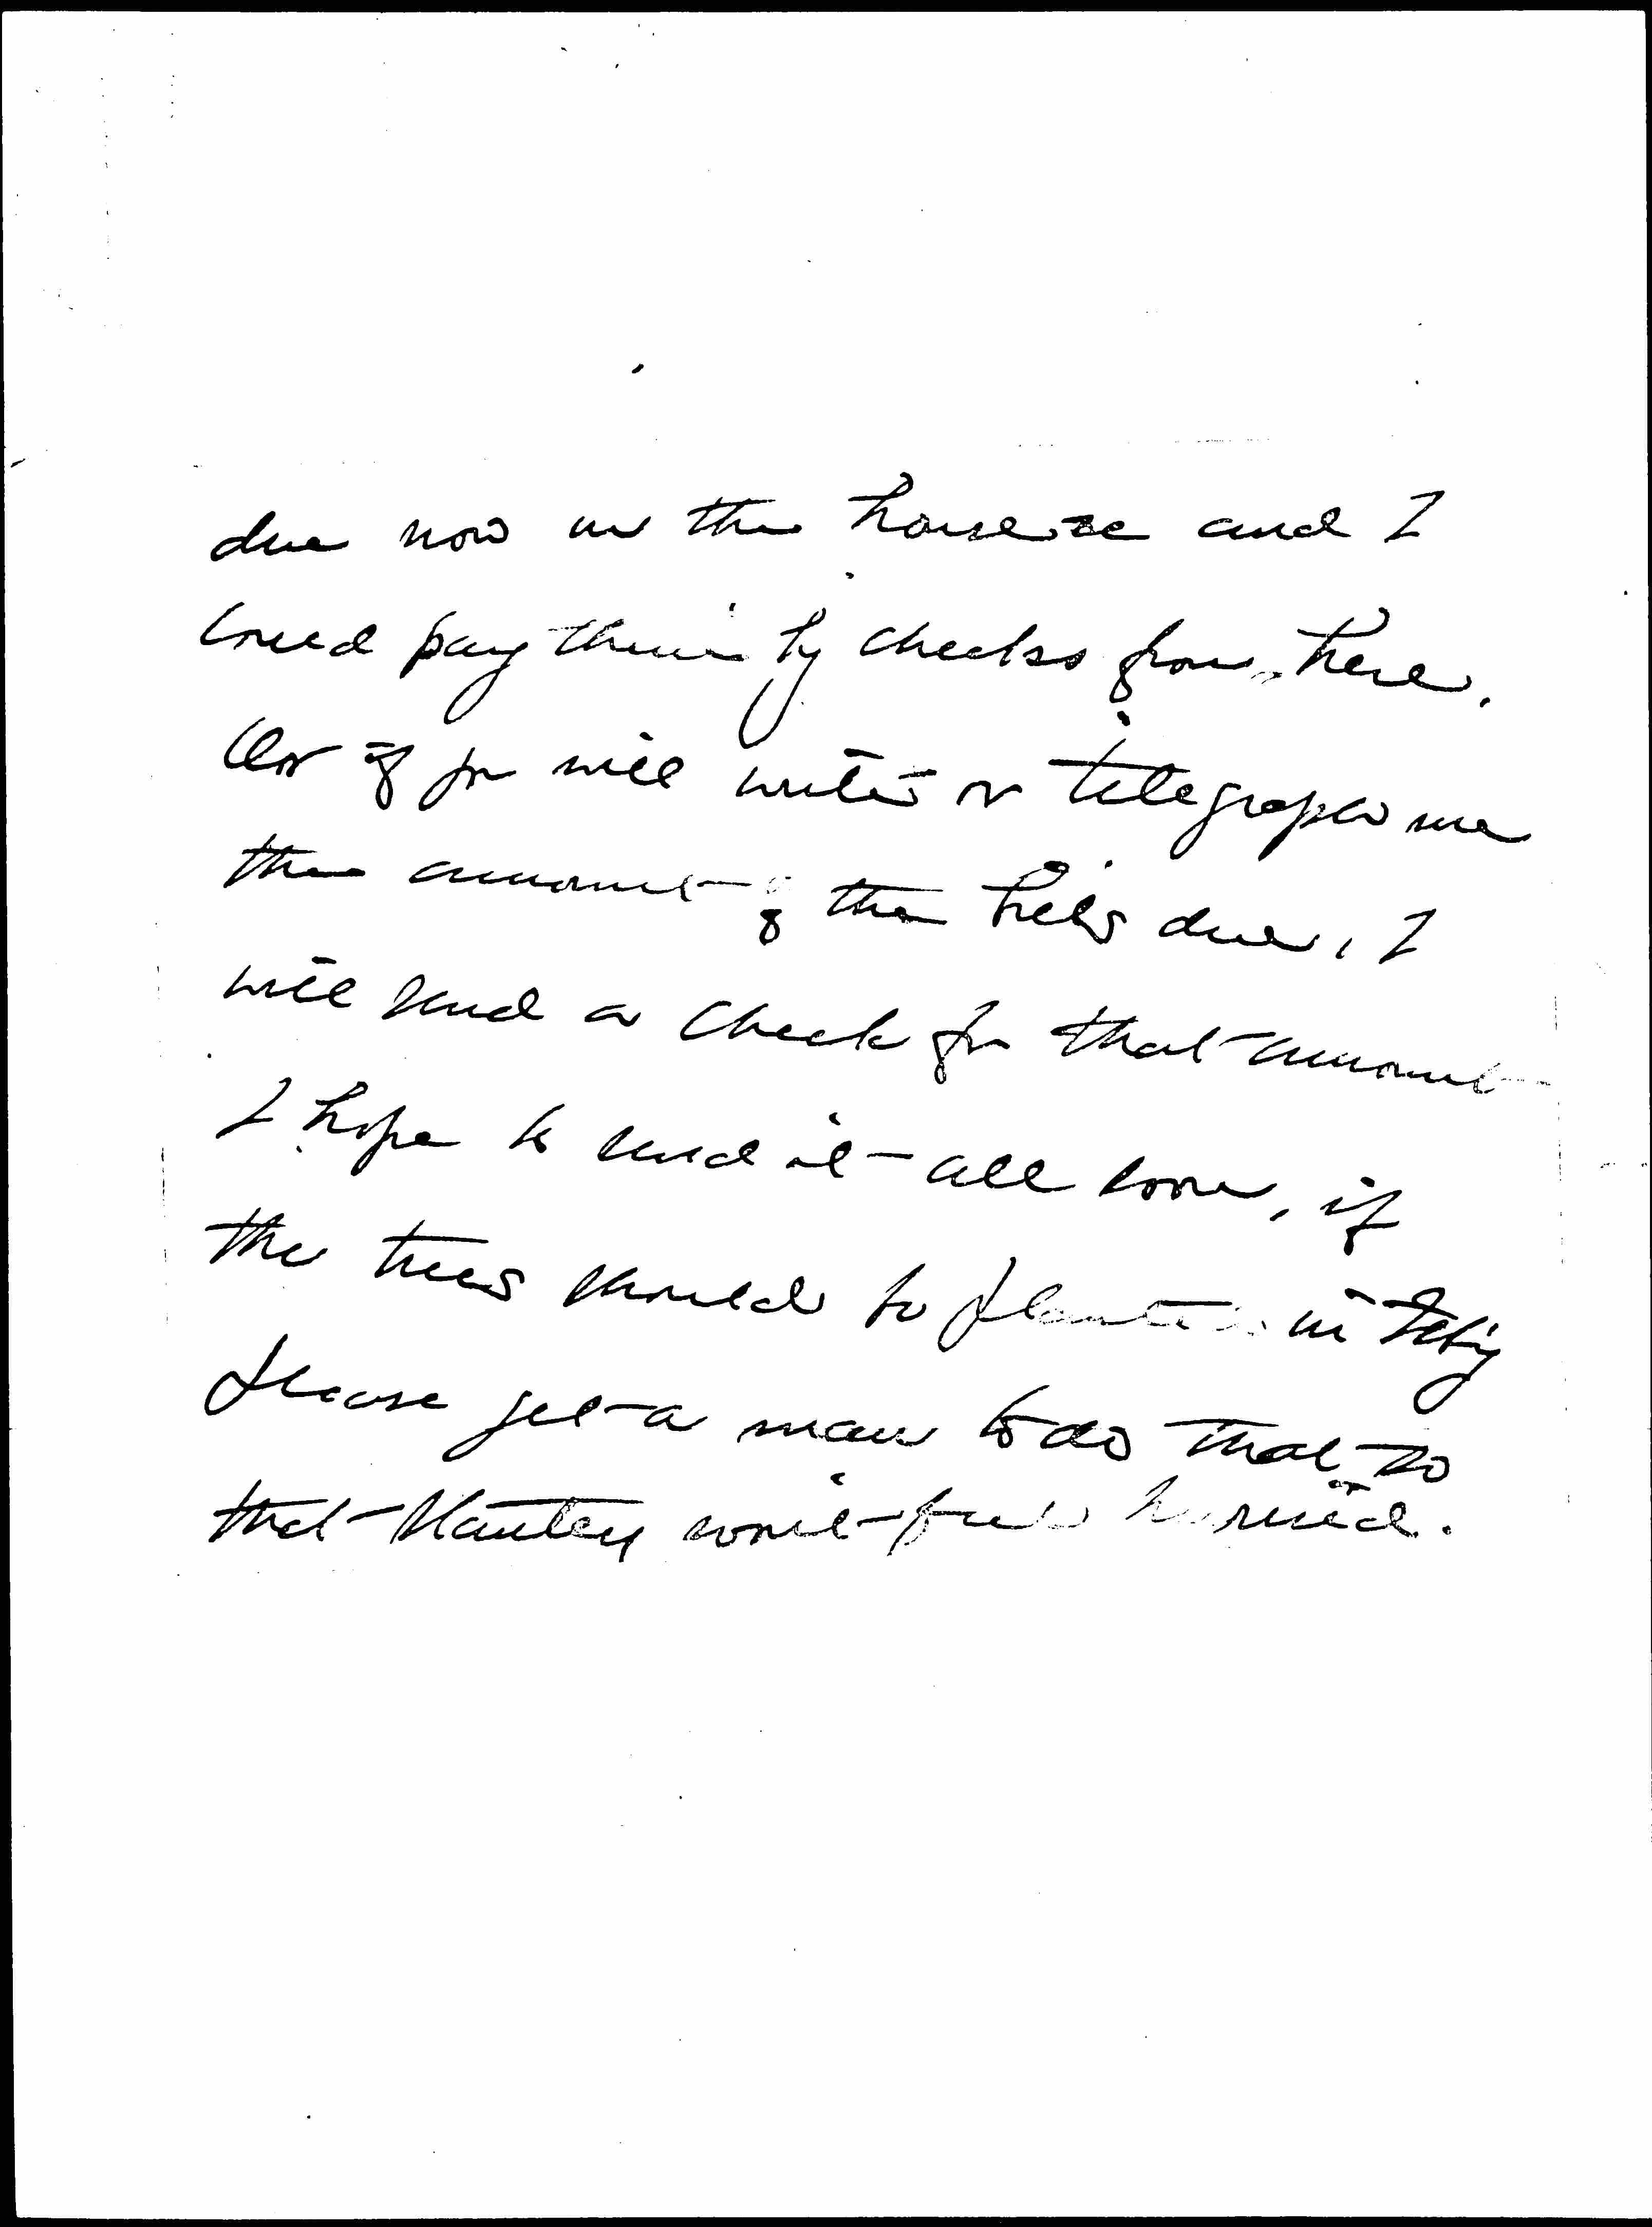 due now on the house &c and I
could pay them by checks from here.
Or if you will write or telegraph me
the amount of the bills due, I
will send a check for that amount
I hope to send it all soon, if
the trees should be planted in Feby
please get a man to do that so
that Stanley won't feel hurried.